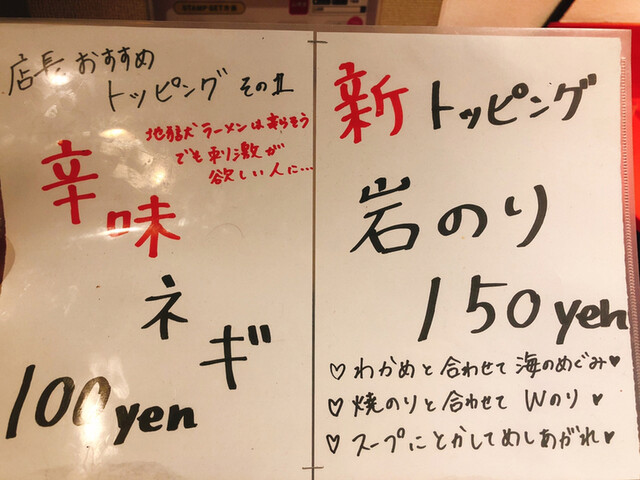 STAMP GET作戦
店長おすすめ
トッピング その1
地獄ラーメンは辛そう
でも刺激が
欲しい人に…
辛味
ネギ
100yen
新トッピング
岩のり
150yen
♡わかめと合わせて海のめぐみ♥
♡焼のりと合わせて Wのり♥
♡スープにとかしてめしあがれ♥